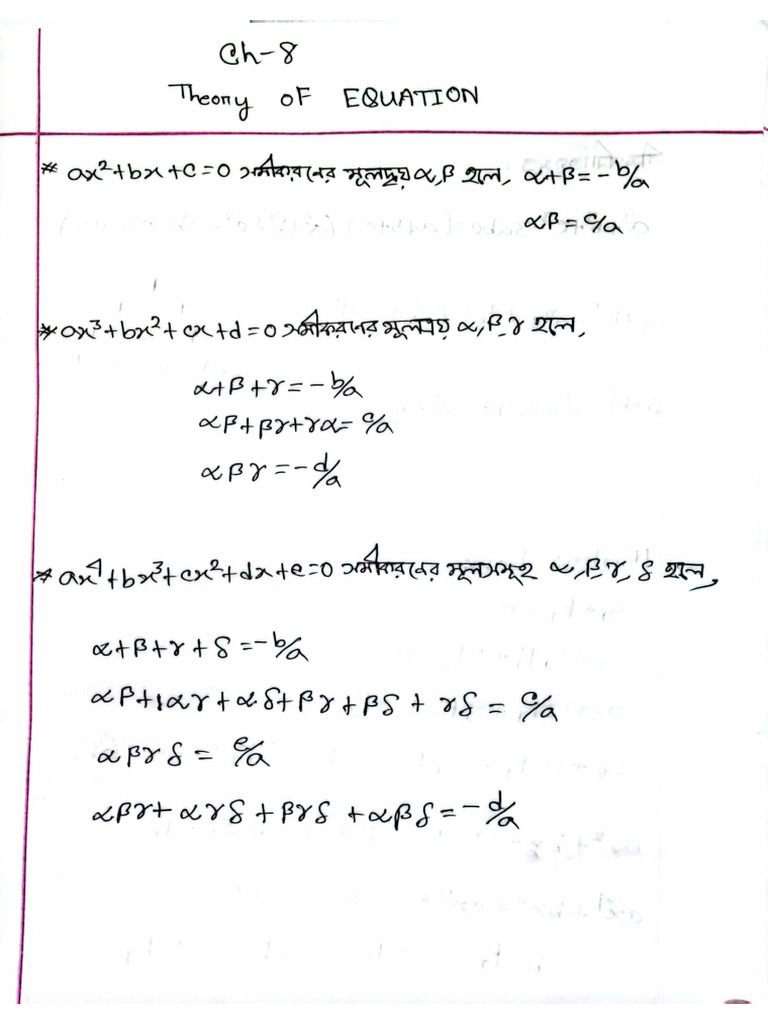 Ch-8
Theory OF EQUATION
* ax²+bx+c=0 সমীকরনের মূলদ্বয় α,β হলে, α+β=-b/a
αβ=c/a
* ax³+bx²+cx+d=0 সমীকরনের মূলত্রয় α,β,γ হলে,
α+β+γ=-b/a
αβ+βγ+γα=c/a
αβγ=-d/a
* ax⁴+bx³+cx²+dx+e=0 সমীকরনের মূলসমূহ α,β,γ,δ হলে,
α+β+γ+δ=-b/a
αβ+αγ+αδ+βγ+βδ+γδ=c/a
αβγδ=e/a
αβγ+αγδ+βγδ+αβδ=-d/a